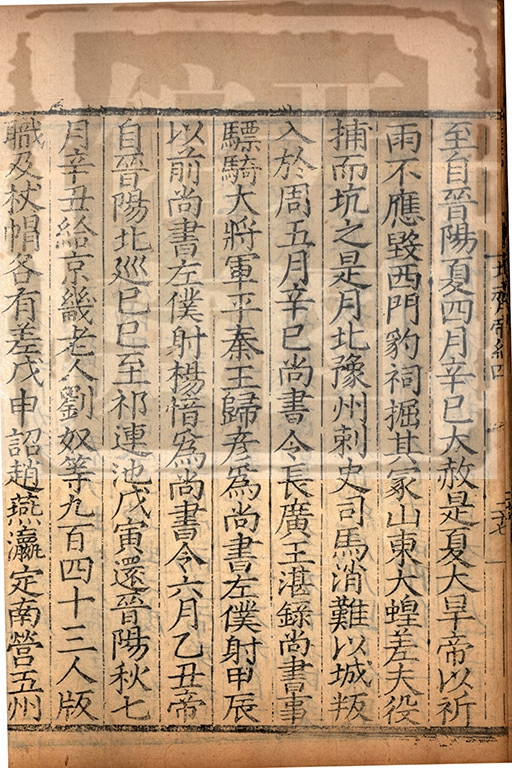 至自晉陽夏四月辛巳大赦是夏大旱帝以祈
雨不應毀西門豹祠掘其冢山東大蝗差夫役
捕而坑之是月北豫州刺史司馬消難以城叛
入於周五月辛巳尚書令長廣王湛錄尚書事
驃騎大將軍平秦王歸彥爲尚書左僕射甲辰
以前尚書左僕射楊愔爲尚書令六月乙丑帝
自晉陽北廵巳巳至祁連池戊寅還晉陽秋七
月辛丑給京畿老人劉奴等九百四十三人版
職及杖帽各有差戊申詔趙燕瀛定南營五州